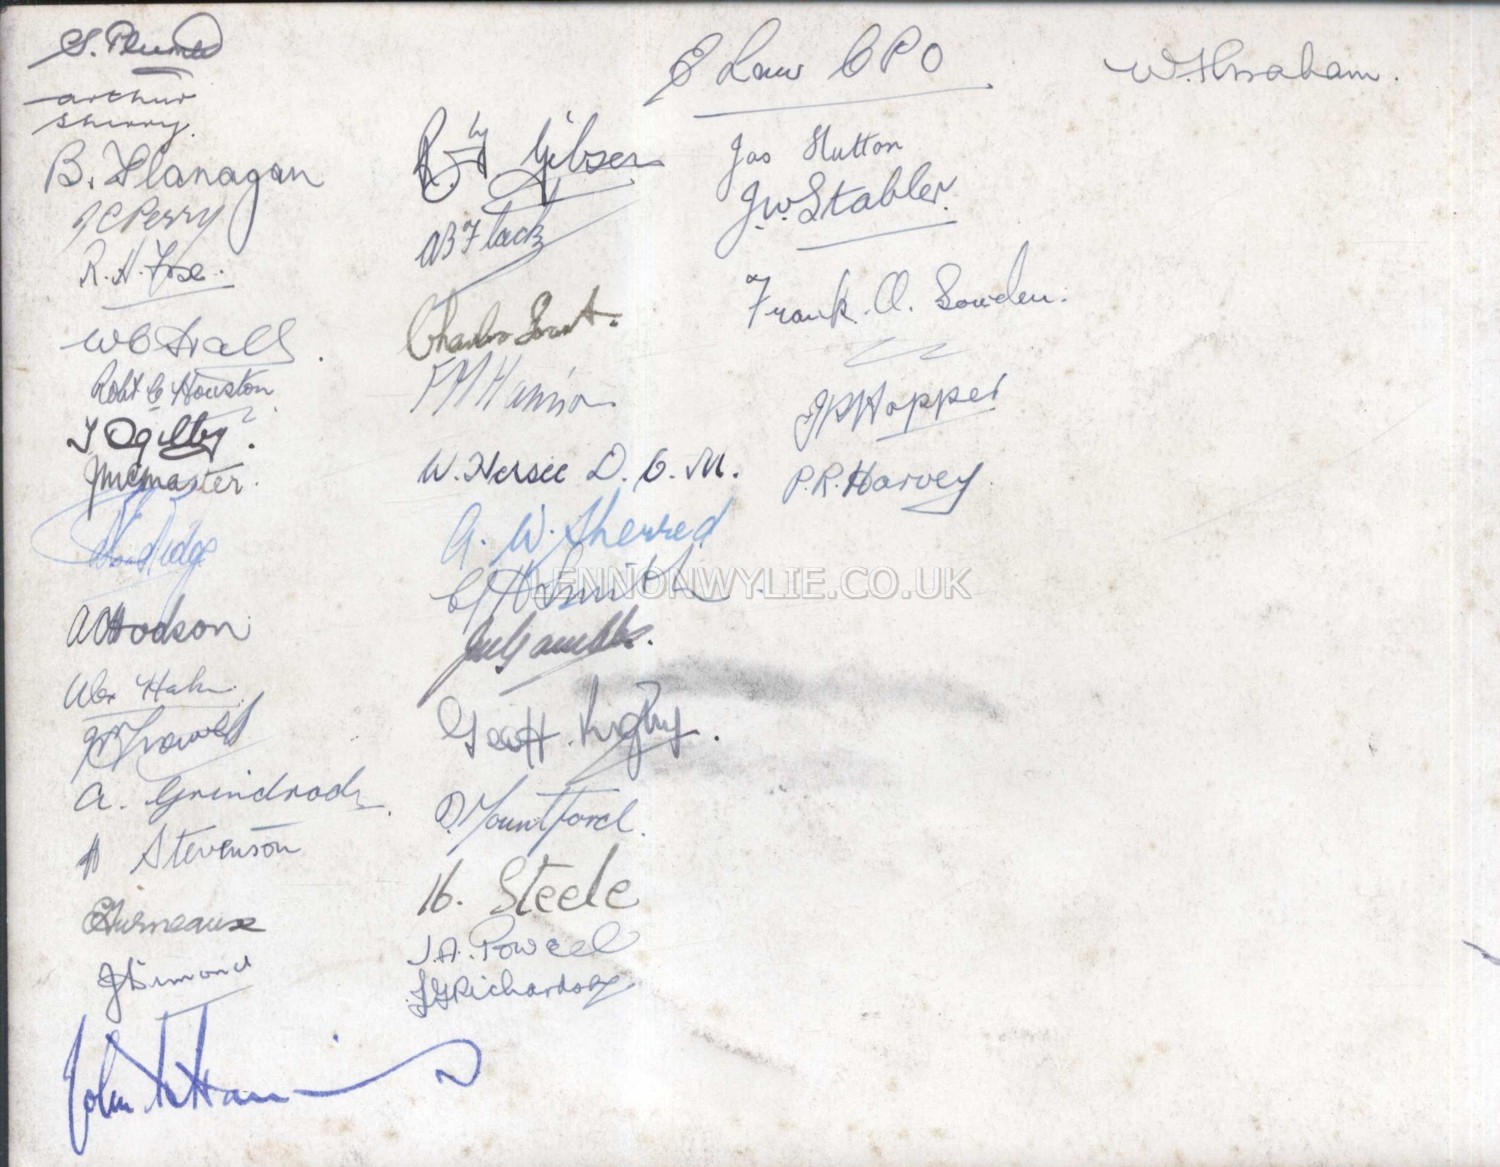 Arthur
Sherry.
B. Flanagan
J C Perry
R. H.
W C
Robt C Houston
J Ogilby.
J McMaster.
A Hodson
Alex Hahn
A. Grindrod
H Stevenson
J Simond
John
Gibson
A B Flack
Charles Grant.
F M
W. Hersee D. C. M.
A. W. Sherred
Smith
Geoff. Rigby.
D. Mountford.
Steele
J. A. Powell
J G Richardson
E Law CPO
Jas Hutton
J. W. Stabler.
Frank. A. Sowden.
Hopper
P. R. Harvey
W. Abraham.
LENNONWYLIE.CO.UK